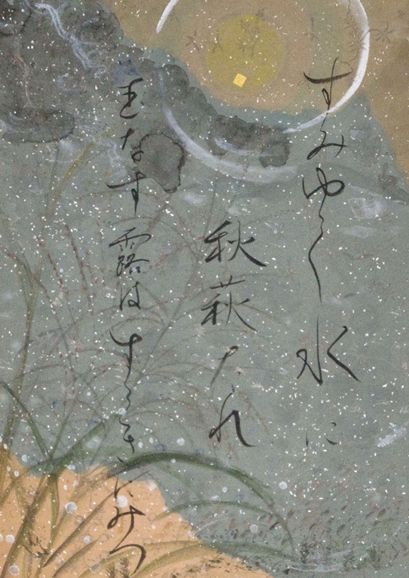 すみゆく水に
秋萩たれ
玉なす露はすゝきにみつ